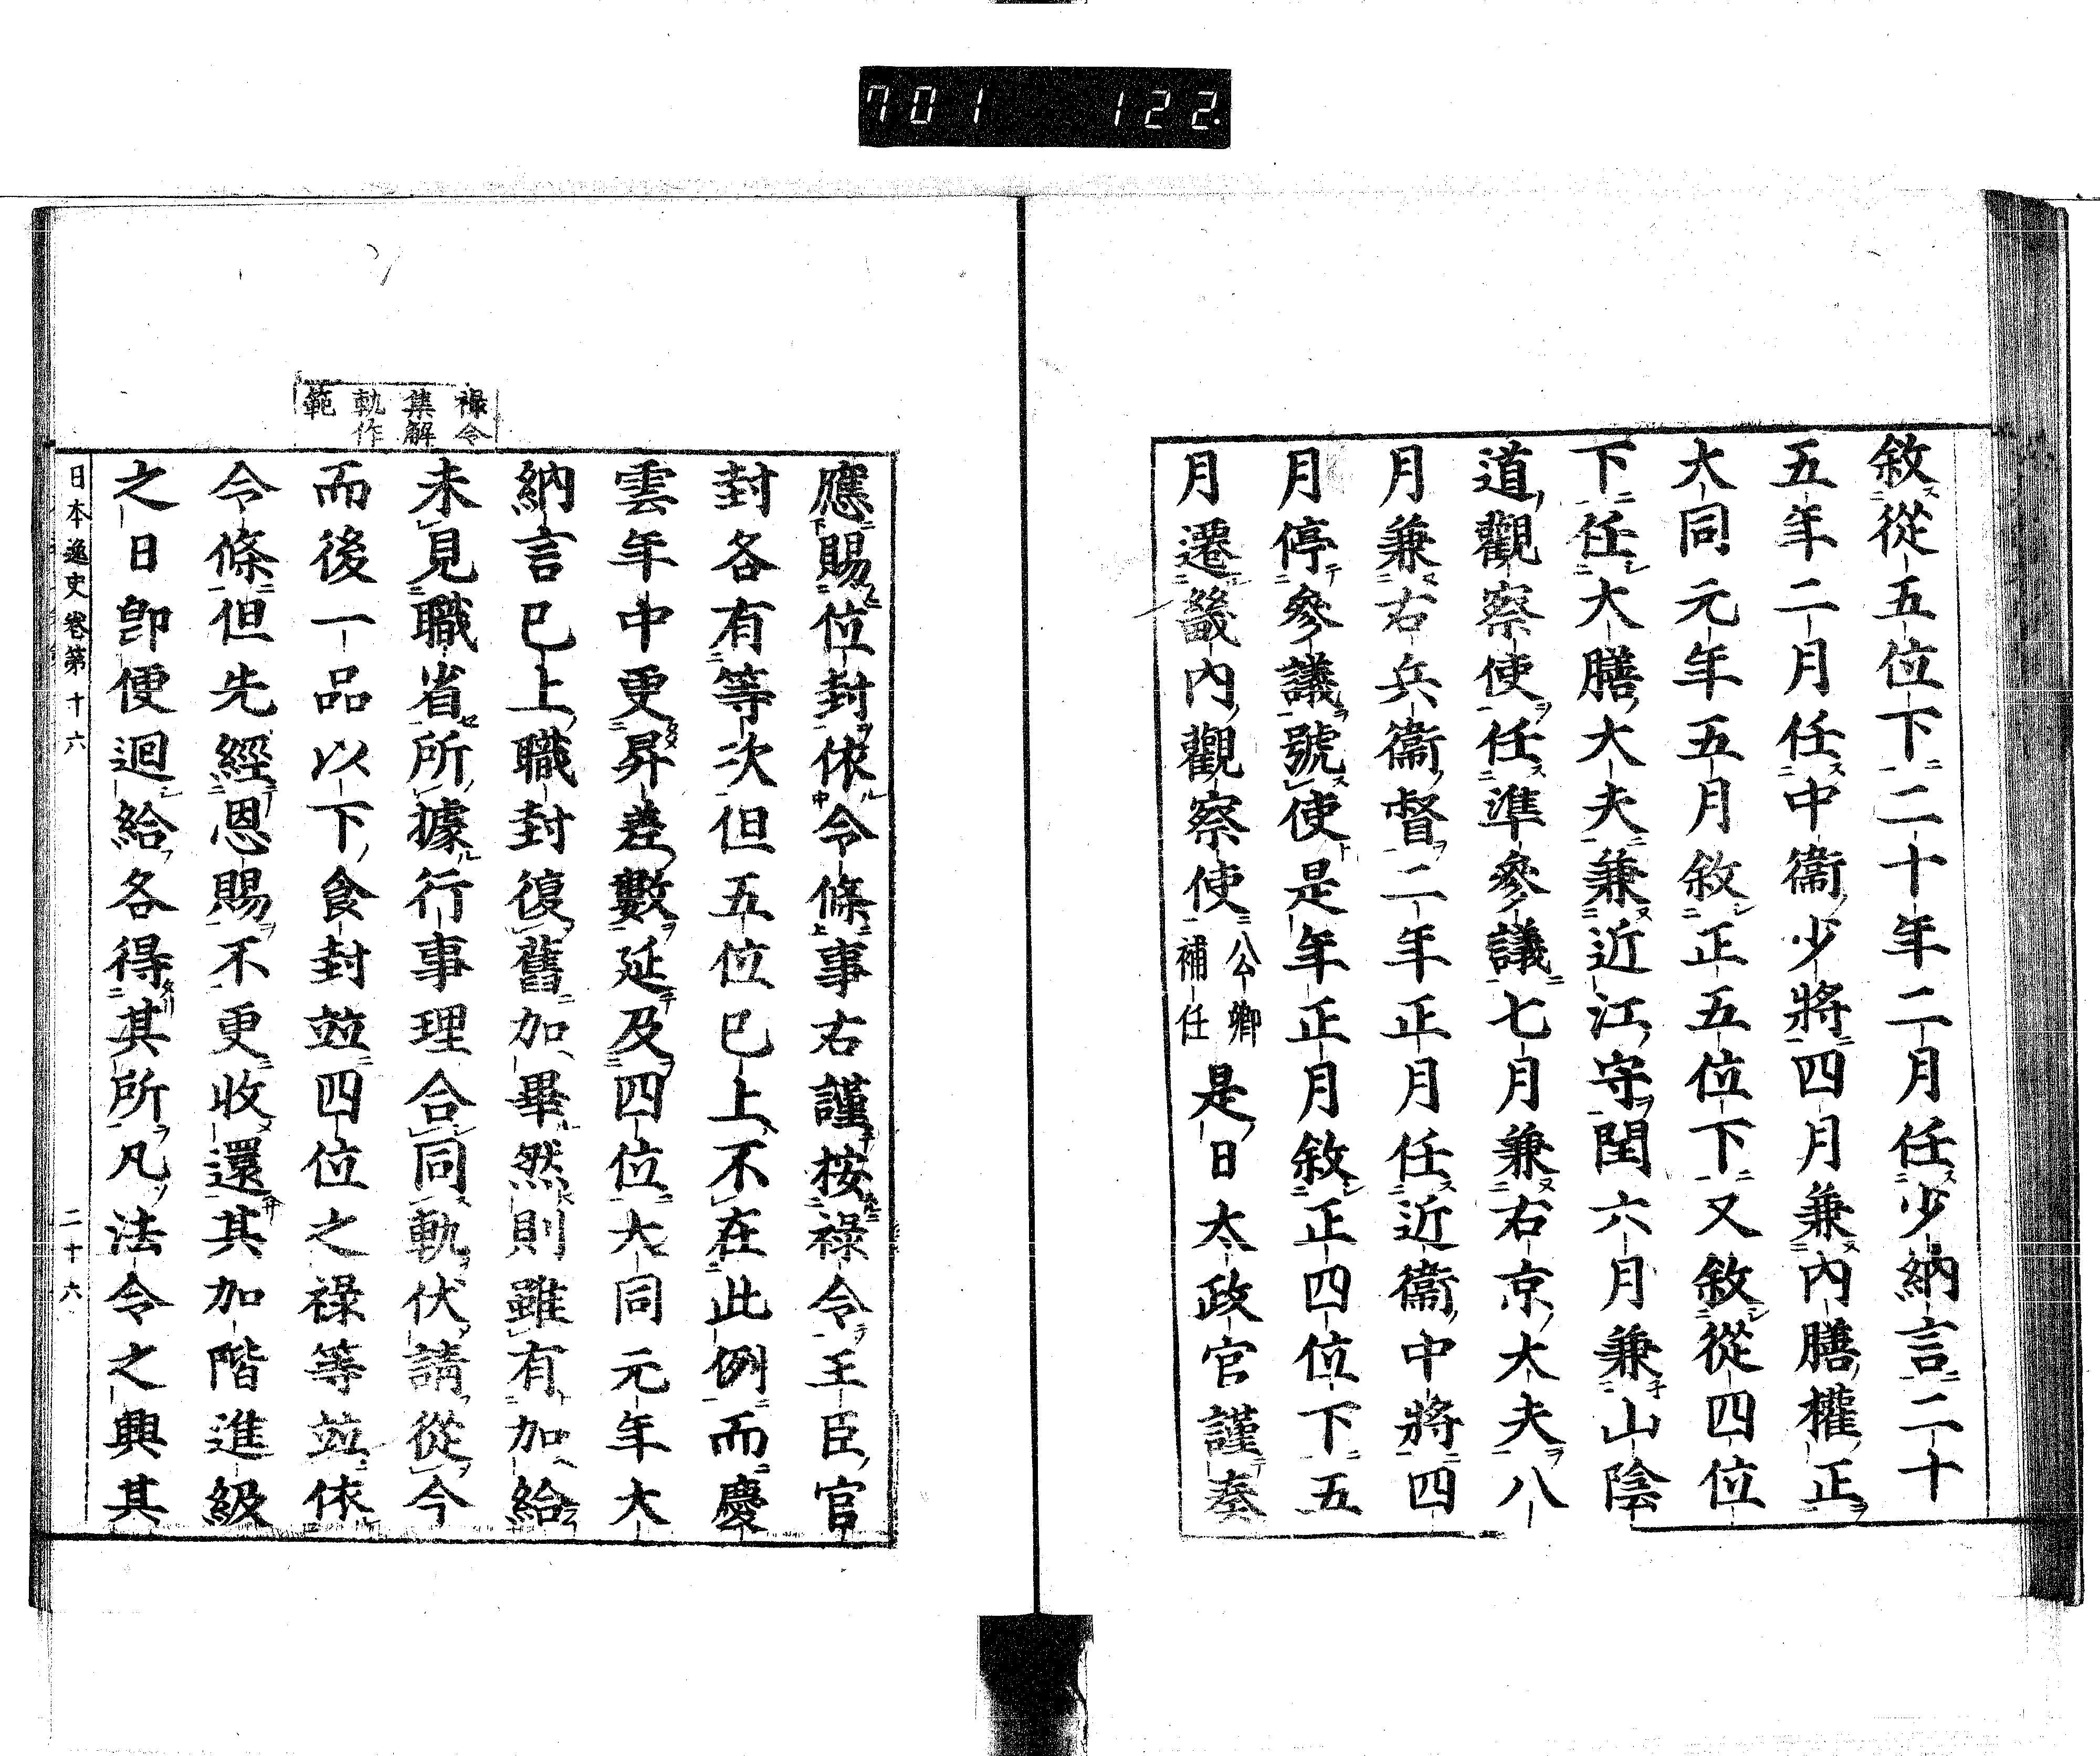 701 122.
敘從五位下二十年二月任少納言二十
五年二月任中衞少將四月兼內膳權正
大同元年五月敘正五位下又敘從四位
下任大膳大夫兼近江守閏六月兼山陰
道觀察使任準參議七月兼右京大夫八
月兼右兵衞督二年正月任近衞中將四
月停參議號使是年正月敘正四位下五
月遷畿內觀察使公卿補任是日太政官謹奏
祿令
集解
軌作
範
應賜位封依令條事右謹按祿令王臣官
封各有等次但五位已上不在此例而慶
雲年中更昇差數延及四位大同元年大
納言已上職封復舊加畢然則雖有加給
未見職省所據行事理合同軌伏請從今
而後一品以下食封竝四位之祿等竝依
令條但先經恩賜不更收還其加階進級
之日卽便迴給各得其所凡法令之興其
日本逸史卷第十六 二十六